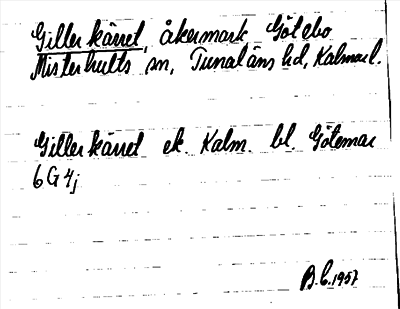 Gillerkärret, åkermark Götebo
Misterhults sn, Tunaläns hd, Kalmar l.
Gillerkärret ek. Kalm. bl. Götemar
6G4j
B.C. 1957